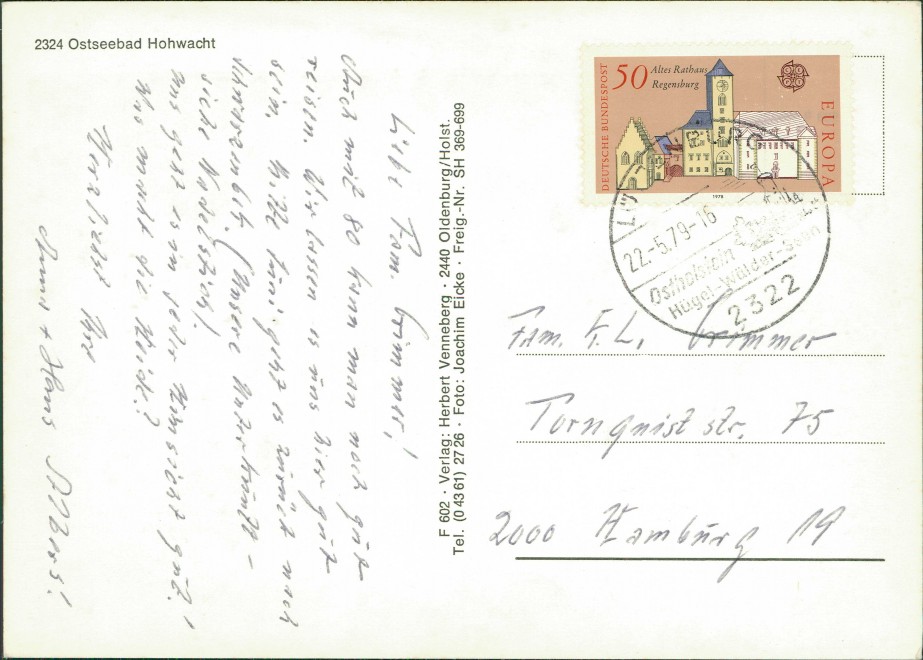 2324 Ostseebad Hohwacht
Liebe Fam. Grimmer,
Auch mit 80 kann man noch gut
reisen. Wir lassen es uns hier gut
sein. Bitte geht es zurück nach
(Unsere Unterkunft -
siehe Nadelstich).
Uns geht es in jeder Hinsicht gut!
Was macht die
Herzlichst Ihre
Anna + Hans Albers!
F 602 · Verlag: Herbert Venneberg · 2440 Oldenburg/Holst.
Tel. (0 43 61) 27 26 · Foto: Joachim Eicke · Freig.-Nr. SH 369-699
DEUTSCHE BUNDESPOST
50
Altes Rathaus
Regensburg
EUROPA
1978
22.-5.79-16
Ostholstein
Hügel-Wälder-Seen
2322
Fam. F. L. Grimmer
Tornquiststr. 75
2000 Hamburg 19